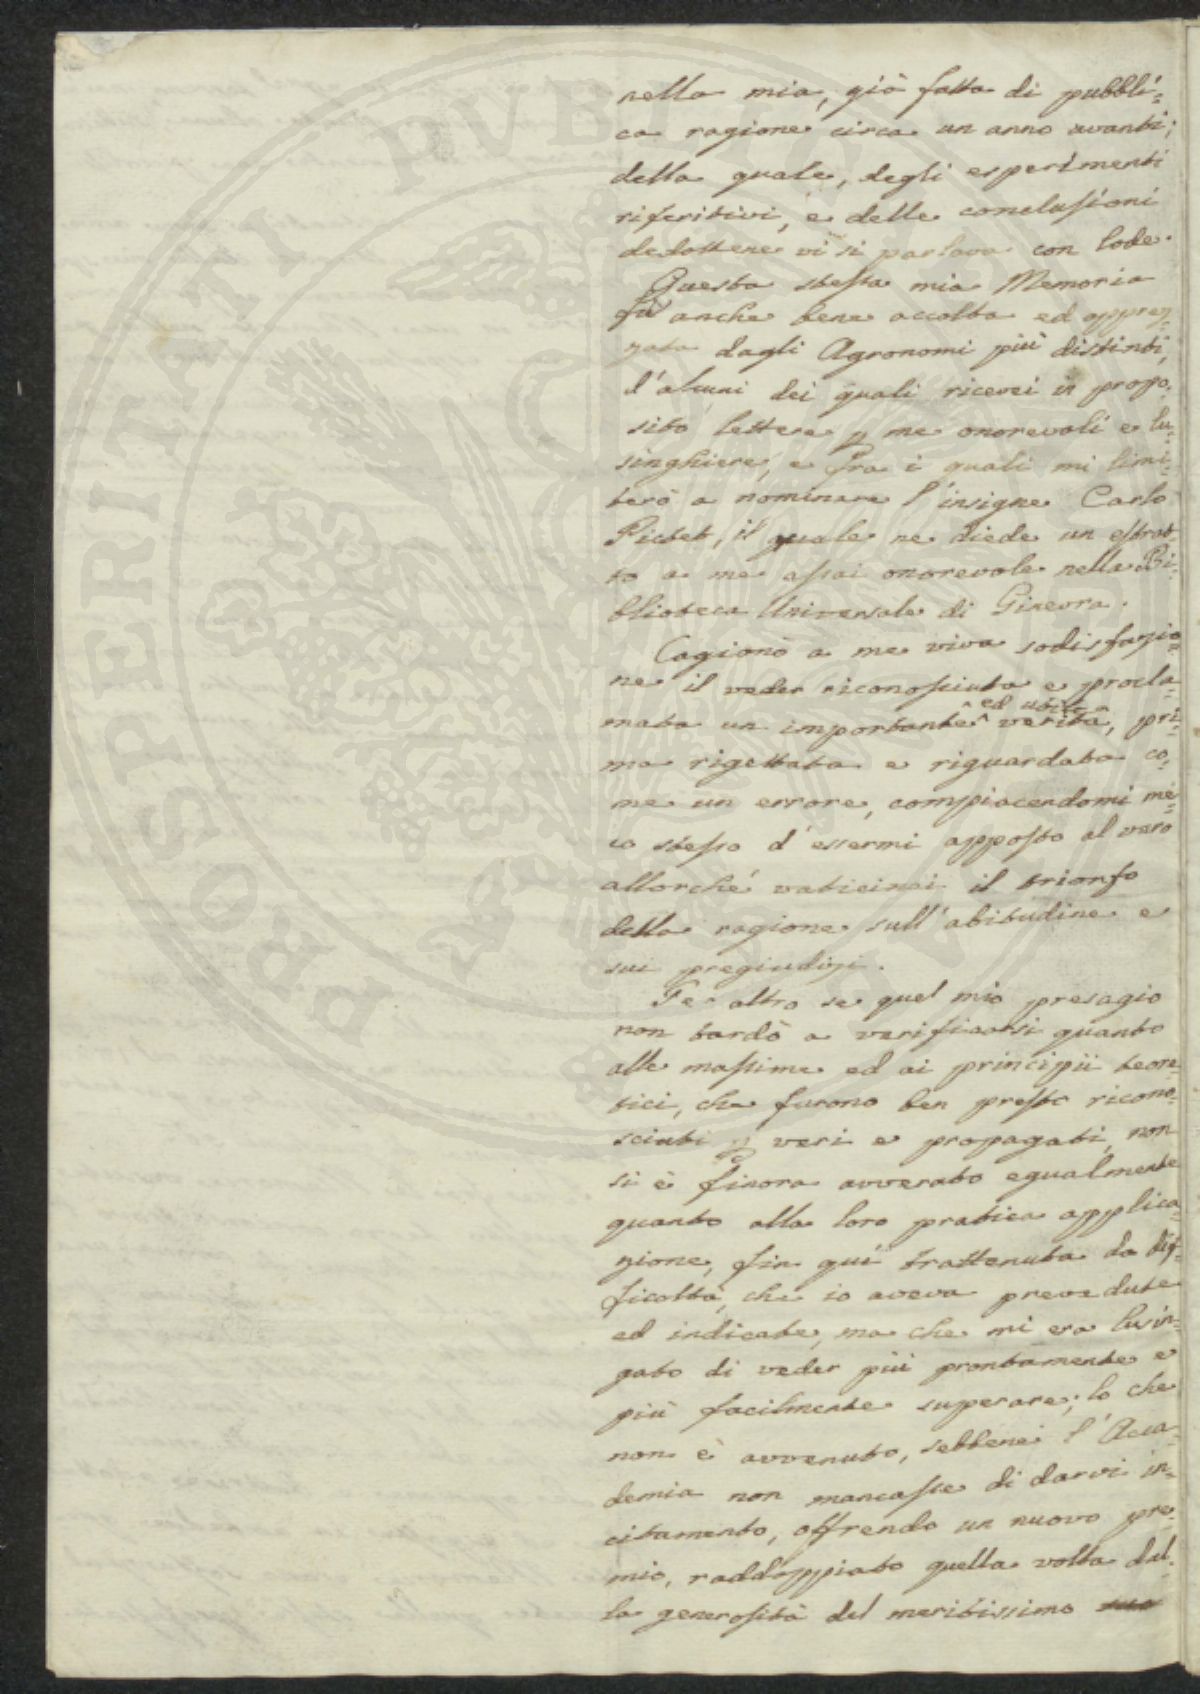 nella mia, già fatta di pubbli=
ca ragione circa un anno avanti;
della quale, degli esperimenti
riferitivi, e delle conclusioni
dedottene vi si parlava con lode.
Questa stessa mia Memoria
fù anche bene accolta ed apprez=
zata dagli Agronomi più distinti,
d'alcuni dei quali ricevei in propo=
sito lettere p me onorevoli e lu=
singhiere, e fra i quali mi limi=
terò a nominare l'insigne Carlo
Pictet, il quale ne diede un estrat=
to a me assai onorevole nella Bi=
blioteca Universale di Ginevra.
Cagionò a me viva sodisfazio=
ne il veder riconosciuta e procla=
mata un importante ^ed utile^ verità, pri=
ma rigettata e riguardata co=
me un errore, compiacendomi me=
co stesso d'essermi apposto al vero
allorché vaticinai il trionfo
della ragione sull'abitudine e
sui pregiudizi.
Per altro se quel mio presagio
non tardò a verificarsi quanto
alle massime ed ai principii teore=
tici, che furono ben presto ricono=
sciuti p veri e propagati, non
si è finora avverato egualmente
quanto alla loro pratica applica=
zione, fin quì trattenuta da dif=
ficoltà, che io aveva prevedute
ed indicate, ma che mi era lusin=
gato di veder più prontamente e
più facilmente superare; lo che
non è avvenuto, sebbene l'Acca=
demia non mancasse di darvi in=
citamento, offrendo un nuovo pre=
mio, raddoppiato quella volta dal=
la generosità del meritissimo
PROSPERITATI PVBLICAE